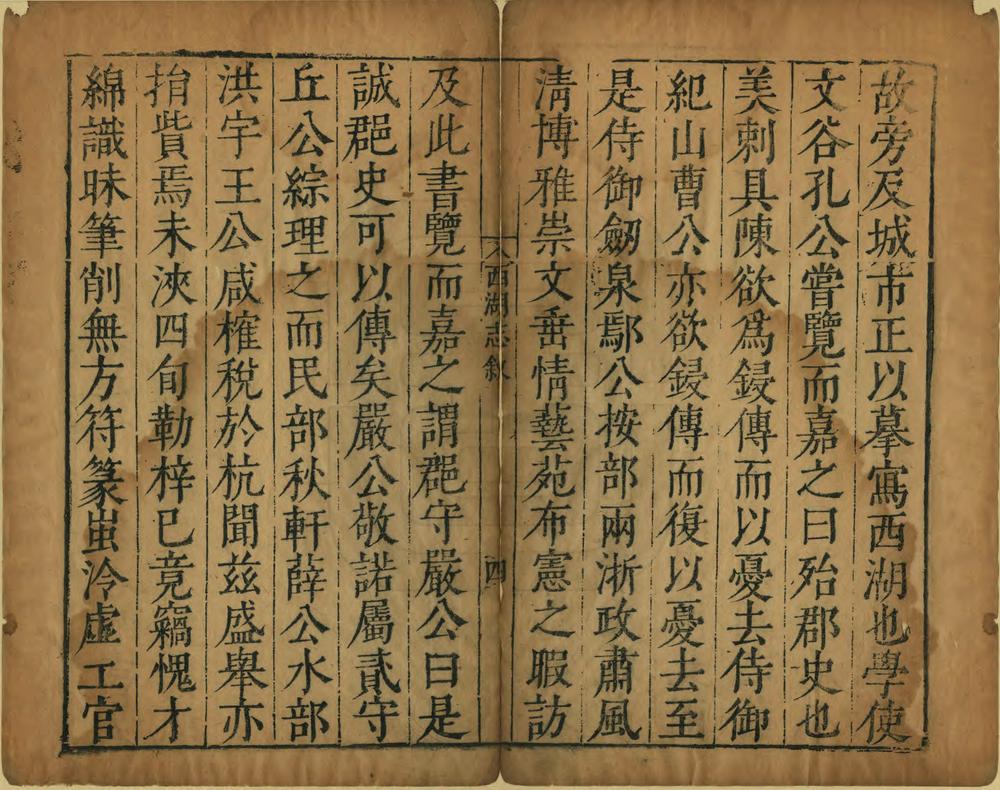 故旁及城市正以摹寫西湖也學使
文谷孔公嘗覽而嘉之曰殆郡史也
美刺具陳欲爲鋟傳而以憂去侍御
紀山曹公亦欲鋟傳而復以憂去至
是侍御劒泉鄢公按部兩浙政肅風
淸博雅崇文垂情藝苑布憲之暇訪
西湖志敘
四
及此書覽而嘉之謂郡守嚴公曰是
誠郡史可以傳矣嚴公敬諾屬貳守
丘公綜理之而民部秋軒薛公水部
洪宇王公咸榷稅於杭聞茲盛舉亦
捐貲焉未浹四旬勒梓已竟竊愧才
綿識昧筆削無方符篆蚩泠虛工官